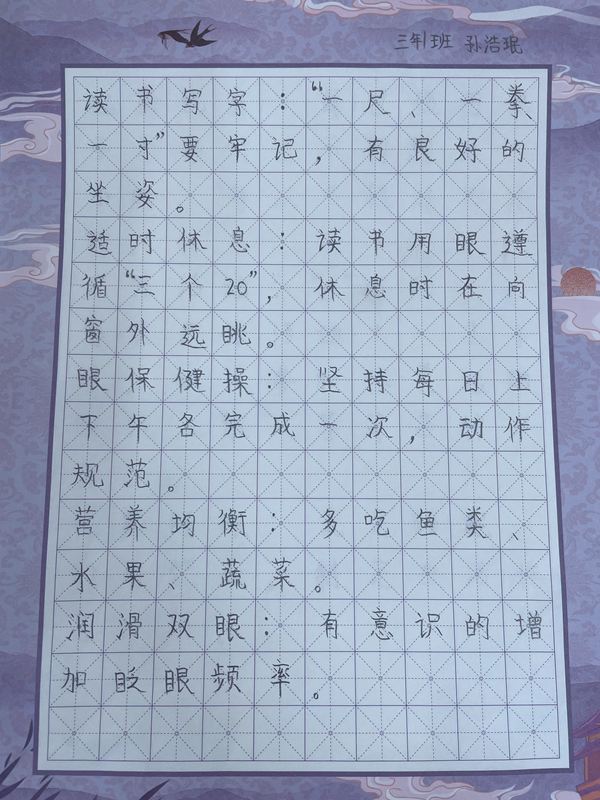 三年班 孙浩珉
读书写字：“一尺、一拳、
一寸”要牢记，有良好的
坐姿。
适时休息：读书用眼遵
循“三个20”，休息时在向
窗外远眺。
眼保健操：坚持每日上
下午各完成一次，动作
规范。
营养均衡：多吃鱼类、
水果、蔬菜。
润滑双眼：有意识的增
加眨眼频率。